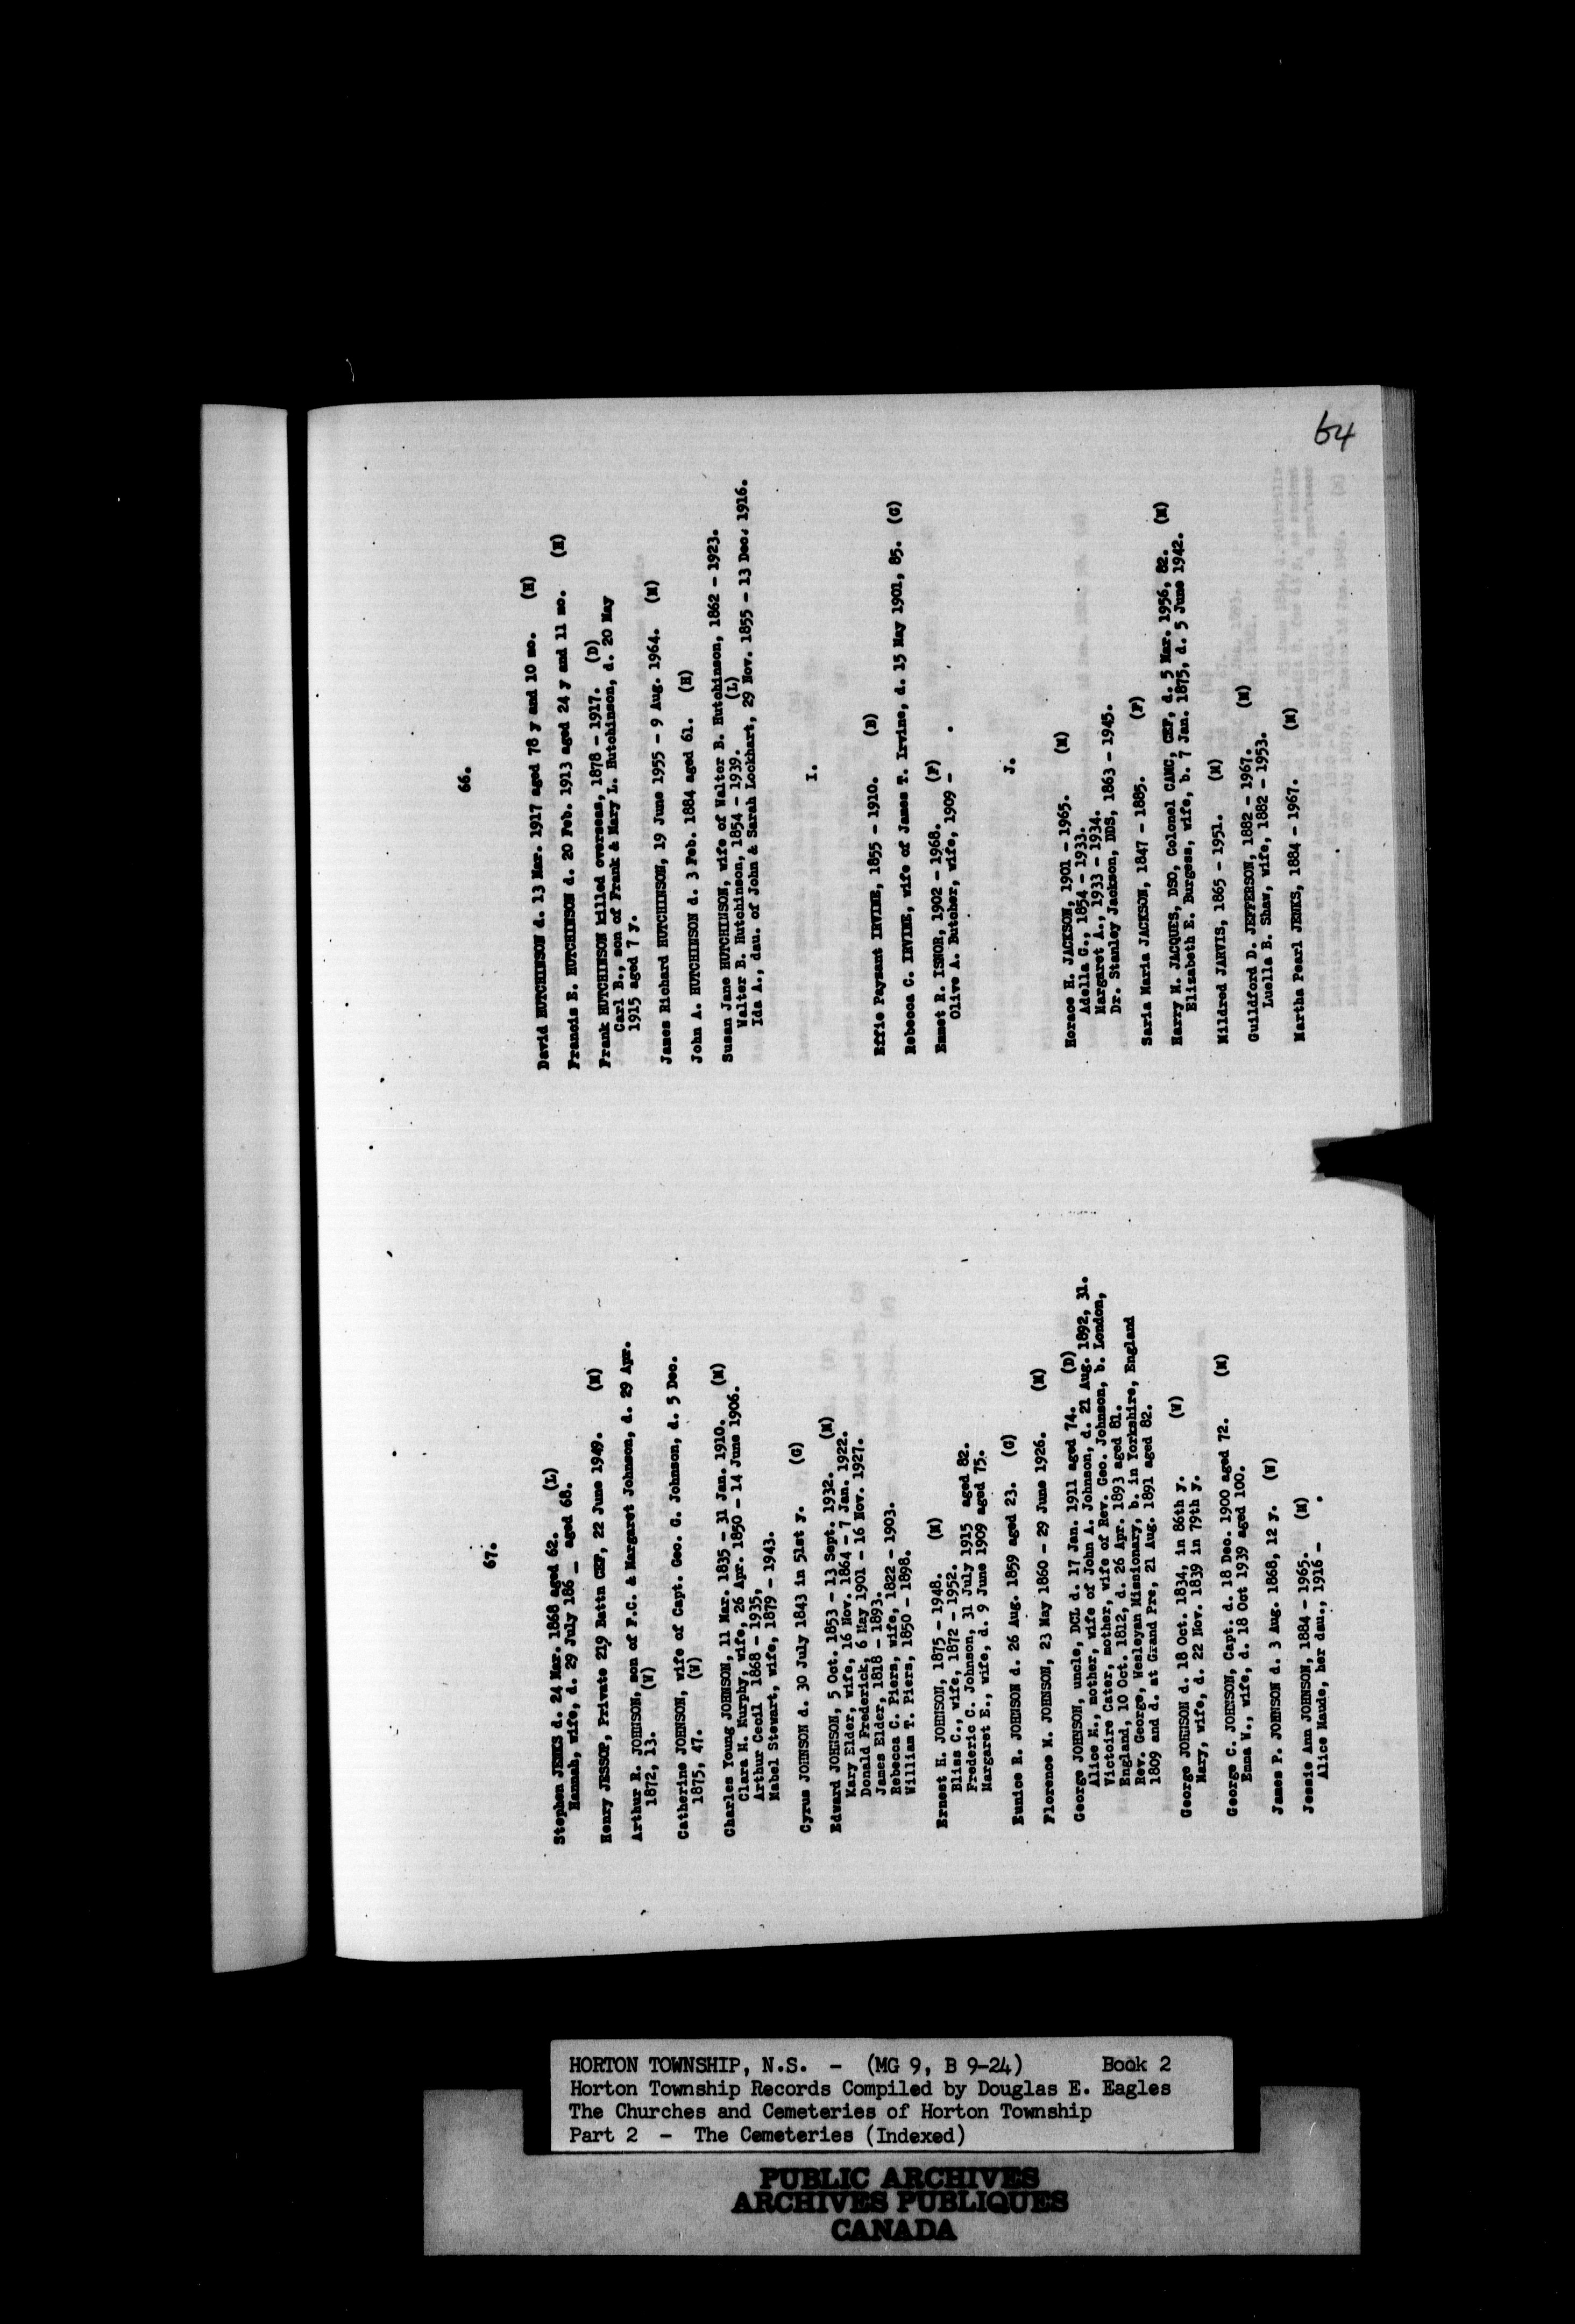 64
66.
David HUTCHINSON d. 13 Mar. 1917 aged 78 y and 10 mo. (H)
Francis E. HUTCHINSON d. 20 Feb. 1913 aged 24 y and 11 mo. (H)
Frank HUTCHINSON killed overseas, 1878 - 1917. (D)
Carl B., son of Frank & Mary L. Hutchinson, d. 20 May
1915 aged 7 y.
James Richard HUTCHINSON, 19 June 1955 - 9 Aug. 1964. (N)
John A. HUTCHINSON d. 3 Feb. 1884 aged 61. (H)
Susan Jane HUTCHINSON, wife of Walter B. Hutchinson, 1862 - 1923.
Walter B. Hutchinson, 1854 - 1939. (L)
Ida A., dau. of John & Sarah Lockhart, 29 Nov. 1855 - 13 Dec. 1916.
I.
Effie Paysant IRVINE, 1855 - 1910. (B)
Rebecca C. IRVINE, wife of James T. Irvine, d. 15 May 1901, 85. (G)
Emmet R. ISNOR, 1902 - 1968. (F)
Olive A. Butcher, wife, 1909 - .
J.
Horace H. JACKSON, 1901 - 1965. (N)
Adella G., 1854 - 1933.
Margaret A., 1933 - 1934.
Dr. Stanley Jackson, DDS, 1863 - 1945.
Saria Maria JACKSON, 1847 - 1885. (F)
Harry M. JACQUES, DSO, Colonel CAMC, CEF, d. 5 Mar. 1956, 82. (N)
Elizabeth E. Burgess, wife, b. 7 Jan. 1875, d. 5 June 1942.
Mildred JARVIS, 1865 - 1951. (N)
Guildford D. JEFFERSON, 1882 - 1967. (N)
Luella B. Shaw, wife, 1882 - 1953.
Martha Pearl JENKS, 1884 - 1967. (N)
67.
Stephen JENKS d. 24 Mar. 1868 aged 62. (L)
Hannah, wife, d. 29 July 186_ aged 68.
Henry JESSOP, Private 219 Battn CEF, 22 June 1949. (N)
Arthur R. JOHNSON, son of F.C. & Margaret Johnson, d. 29 Apr.
1872, 13. (W)
Catherine JOHNSON, wife of Capt. Geo. G. Johnson, d. 5 Dec.
1875, 47. (W)
Charles Young JOHNSON, 11 Mar. 1835 - 31 Jan. 1910. (N)
Clara M. Murphy, wife, 26 Apr. 1850 - 14 June 1906.
Arthur Cecil 1868 - 1935,
Mabel Stewart, wife, 1879 - 1943.
Cyrus JOHNSON d. 30 July 1843 in 51st y. (G)
Edward JOHNSON, 5 Oct. 1853 - 13 Sept. 1932. (N)
Kary Elder, wife, 16 Nov. 1864 - 7 Jan. 1922.
Donald Frederick, 6 May 1901 - 16 Nov. 1927.
James Elder, 1818 - 1893.
Rebecca C. Piers, wife, 1822 - 1903.
William T. Piers, 1850 - 1898.
Ernest H. JOHNSON, 1875 - 1948. (N)
Bliss C., wife, 1872 - 1952.
Frederic C. Johnson, 31 July 1915 aged 82.
Margaret E., wife, d. 9 June 1909 aged 75.
Eunice R. JOHNSON d. 26 Aug. 1859 aged 23. (G)
Florence M. JOHNSON, 23 May 1860 - 29 June 1926. (N)
George JOHNSON, uncle, DCL d. 17 Jan. 1911 aged 74. (D)
Alice M., mother, wife of John A. Johnson, d. 21 Aug. 1892, 31.
Victoire Cater, mother, wife of Rev. Geo. Johnson, b. London,
England, 10 Oct. 1812, d. 26 Apr. 1893 aged 81.
Rev. George, Wesleyan Missionary, b. in Yorkshire, England
1809 and d. at Grand Pre, 21 Aug. 1891 aged 82.
George JOHNSON d. 18 Oct. 1834, in 86th y. (W)
Mary, wife, d. 22 Nov. 1839 in 79th y.
George C. JOHNSON, Capt. d. 18 Dec. 1900 aged 72. (N)
Emma W., wife, d. 18 Oct 1939 aged 100.
James P. JOHNSON d. 3 Aug. 1868, 12 y. (W)
Jessie Ann JOHNSON, 1884 - 1965. (N)
Alice Maude, her dau., 1916 - .
HORTON TOWNSHIP, N.S. - (MG 9, B 9-24) Book 2
Horton Township Records Compiled by Douglas E. Eagles
The Churches and Cemeteries of Horton Township
Part 2 - The Cemeteries (Indexed)
PUBLIC ARCHIVES
ARCHIVES PUBLIQUES
CANADA